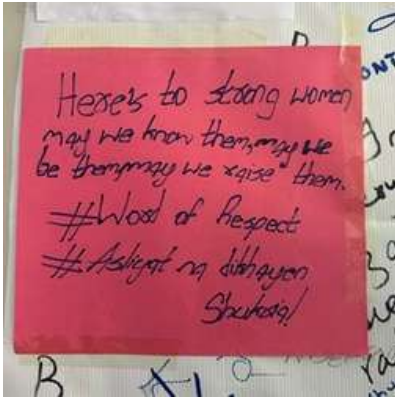 Here's to strong women
may we know them, may we
be them, may we raise" them.
#Word of Respect
#Asliyat na dikhayen
Shukria!
B